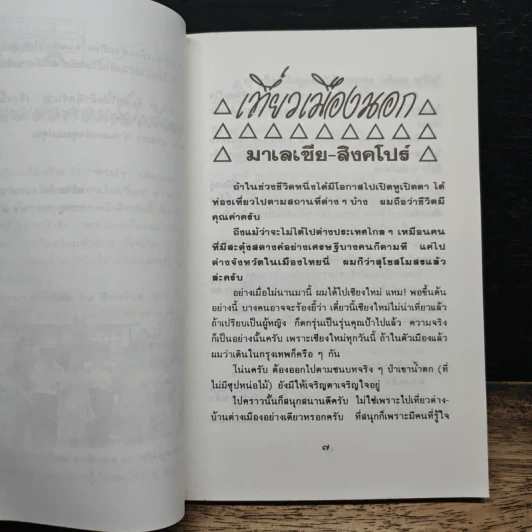 เที่ยวเมืองนอก
มาเลเซีย-สิงคโปร์
ถ้าในช่วงชีวิตหนึ่งได้มีโอกาสไปเปิดหูเปิดตา ได้
ท่องเที่ยวไปตามสถานที่ต่าง ๆ บ้าง ผมถือว่าชีวิตมี
คุณค่าครับ
ถึงแม้ว่าจะไม่ได้ไปต่างประเทศไกล ๆ เหมือนคน
ที่มีสะตุ้งสตางค์อย่างเศรษฐีบางคนก็ตามที แค่ไป
ต่างจังหวัดในเมืองไทยนี่ ผมก็ว่าสุโขสโมสรแล้ว
ล่ะครับ
อย่างเมื่อไม่นานมานี้ ผมได้ไปเชียงใหม่ แหม! พอขึ้นต้น
อย่างนี้ บางคนอาจจะร้องยี้ว่า เดี๋ยวนี้เชียงใหม่ไม่น่าเที่ยวแล้ว
ถ้าเปรียบเป็นผู้หญิง ก็ตกรุ่นเป็นรุ่นคุณป้าไปแล้ว ความจริง
ก็เป็นอย่างนั้นครับ เพราะเชียงใหม่ทุกวันนี้ ถ้าในตัวเมืองแล้ว
ผมว่าเดินในกรุงเทพก็ครือ ๆ กัน
โน่นครับ ต้องออกไปตามชนบทจริง ๆ ป่าเขาน้ำตก (ที่
ไม่มีซุปหน่อไม้) ยังมีให้เจริญตาเจริญใจอยู่
ไปคราวนั้นก็สนุกสนานดีครับ ไม่ใช่เพราะไปเที่ยวต่าง-
บ้านต่างเมืองอย่างเดียวหรอกครับ ที่สนุกก็เพราะมีคนที่รู้ใจ
๗